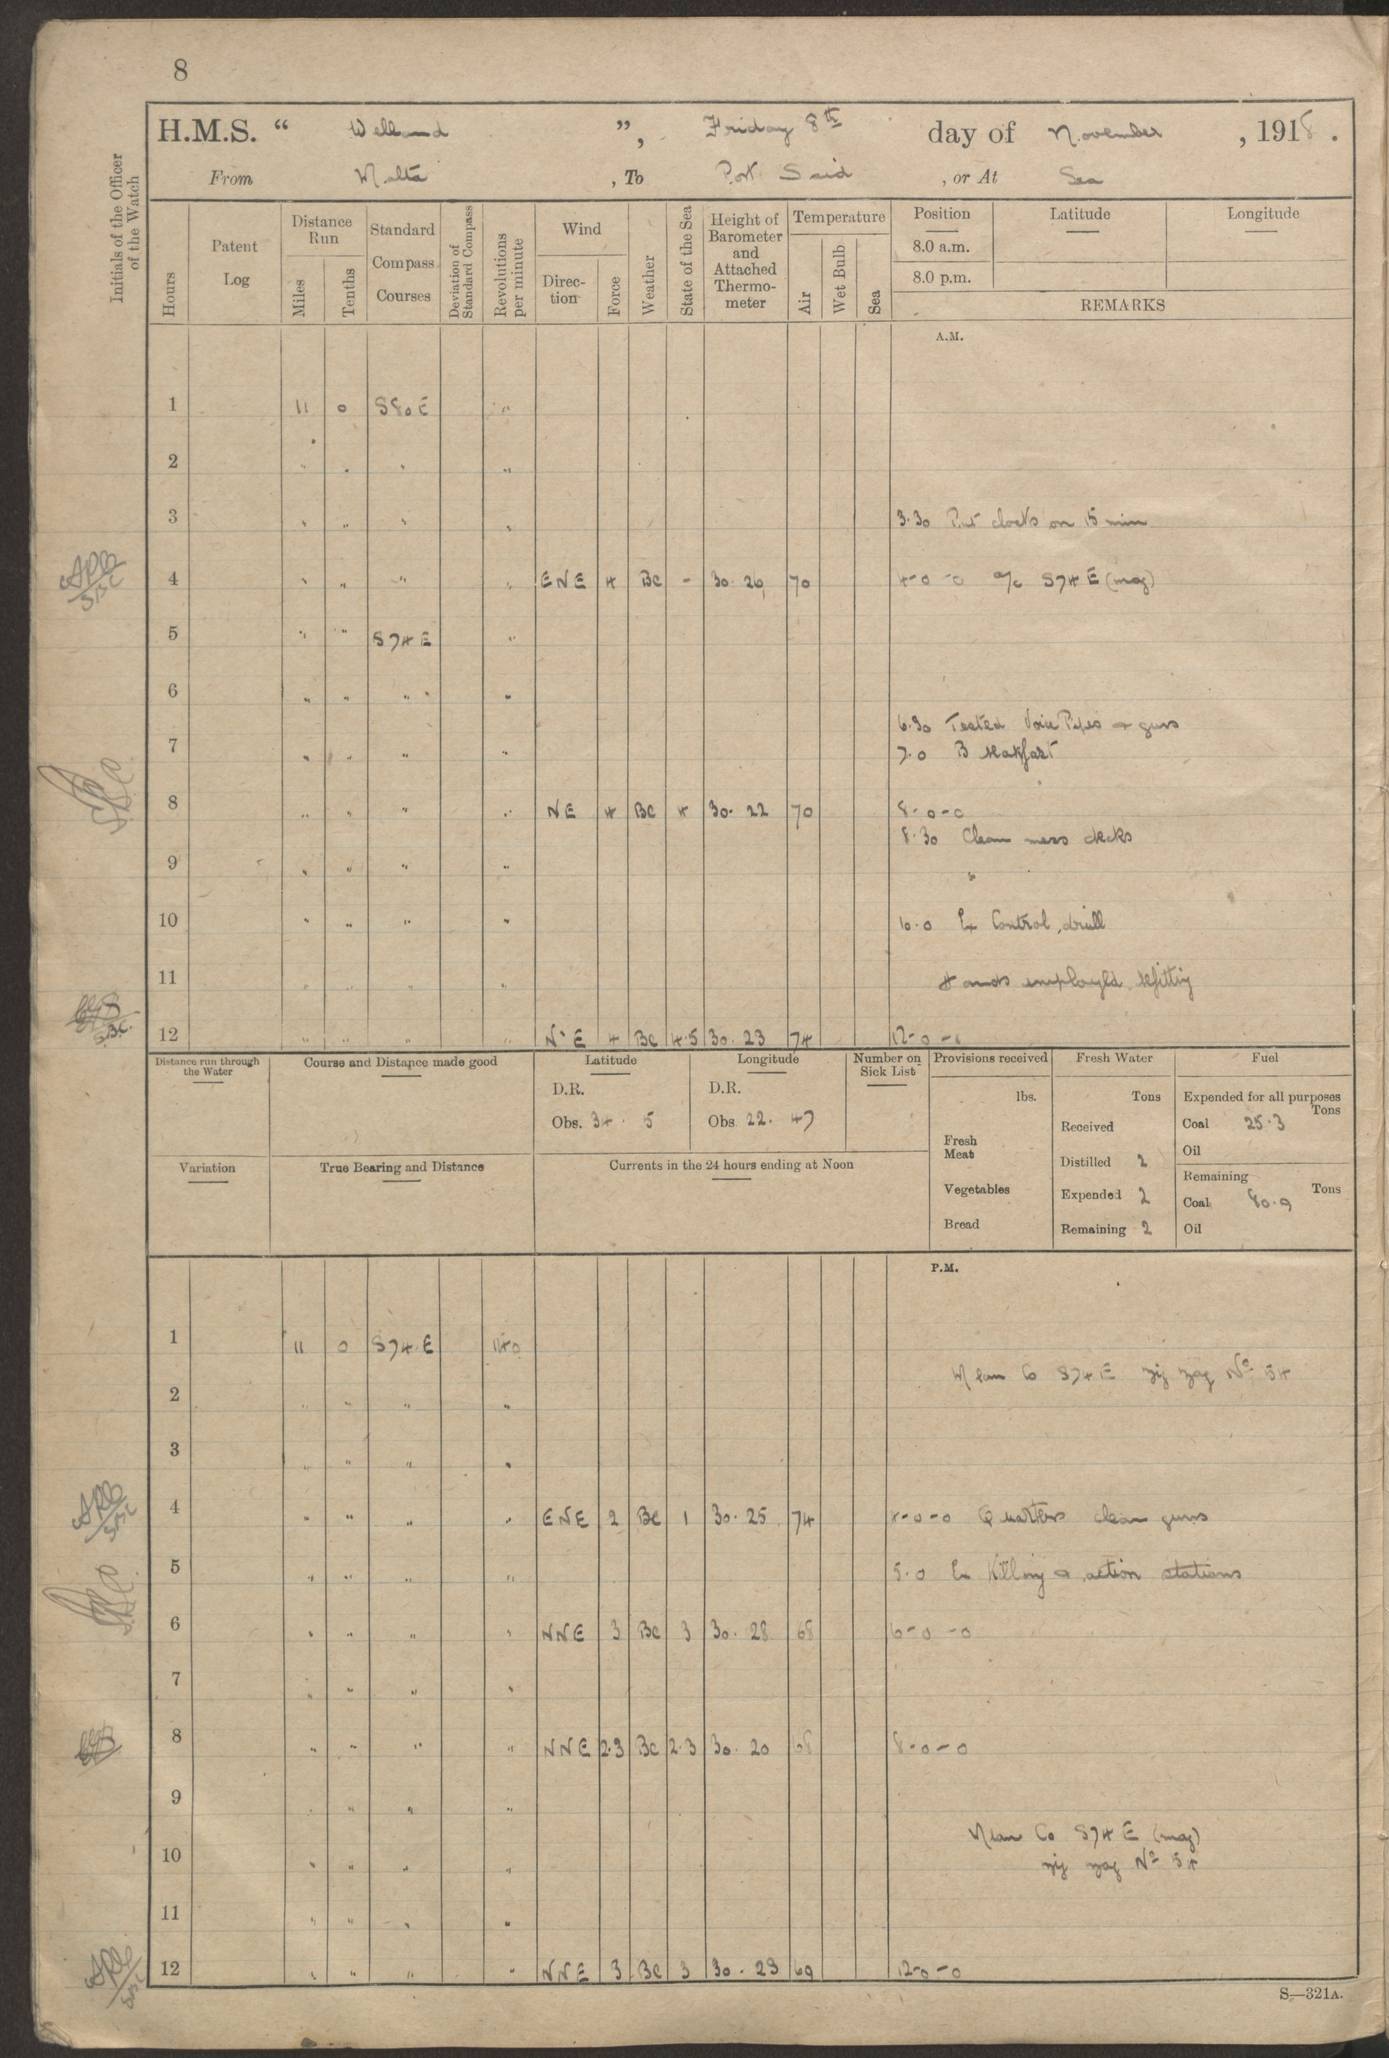 8
H.M.S. “ Welland ”, Friday 8th day of November, 1918.
From Malta, To Port Said, or At Sea
Initials of the Officer of the Watch
Hours
Patent Log
Distance Run
Miles
Tenths
Standard Compass Courses
Deviation of Standard Compass
Revolutions per minute
Wind
Direction
Force
Weather
State of the Sea
Height of Barometer and Attached Thermometer
Temperature
Air
Wet Bulb
Sea
Position
Latitude
Longitude
8.0 a.m.
8.0 p.m.
REMARKS
A.M.
1 11 0 S80E "
2 " " " "
3 " " " "
3.30 Put clocks on 15 min
4 " " " " ENE 4 BC - 30. 26 70 4-0-0 a/c S74E (mag)
5 " " S74E "
6 " " " "
6.30 Tested Voice Pipes & guns
7 " " " "
7.0 Breakfast
8 " " " " NE 4 BC 4 30. 22 70 8-0-0
8.30 Clean mess decks
9 " " " "
10 " " " " 10.0 Ex Control, drill
11 " " " " Hands employed refitting
12 " " " " N'E 4 BC 4.5 30. 23 74 12-0-0
Distance run through the Water
Course and Distance made good
Latitude
D.R.
Obs. 34. 5
Longitude
D.R.
Obs 22. 47
Number on Sick List
Provisions received
lbs.
Fresh Meat
Vegetables
Bread
Fresh Water
Tons
Received
Distilled 2
Expended 2
Remaining 2
Fuel
Expended for all purposes
Tons
Coal 25.3
Oil
Remaining
Tons
Coal 80.9
Oil
Variation
True Bearing and Distance
Currents in the 24 hours ending at Noon
P.M.
1 11 0 S74E 140
Mean Co S74E zig zag No 54
2 " " " "
3 " " " "
4 " " " " ENE 2 BC 1 30. 25 74 4-0-0 Quarters clean guns
5 " " " " 5.0 Ex Killing & action stations
6 " " " " NNE 3 BC 3 30. 28 68 6-0-0
7 " " " "
8 " " " " NNE 2.3 BC 2.3 30. 20 68 8-0-0
9 " " " "
Mean Co S74E (mag)
10 " " " " zig zag No 54
11 " " " "
12 " " " " NNE 3 BC 3 30. 23 69 12-0-0
S.—321A.